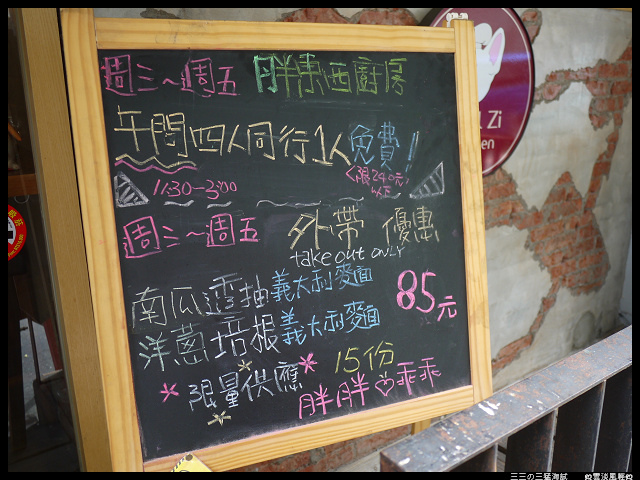 週三~週五 胖東西廚房
午間四人同行1人免費!
11:30-3:00 <限240元以下>
週三~週五 外帶 優惠
take out only
南瓜透抽義大利麵
洋蔥培根義大利麵
85元
限量供應 15份
胖胖♡乖乖
Zi
en
三三の三猛海賦